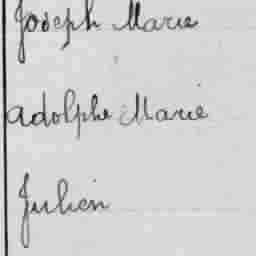 Joseph Marie
Adolphe Marie
Julien